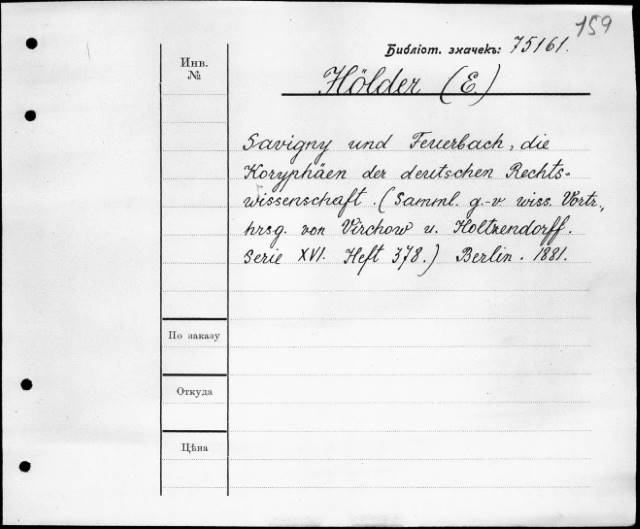 159
Библіот. значекъ: 75161.
Инв.
№
Hölder (E.)
Savigny und Feuerbach, die
Koryphäen der deutschen Rechts-
wissenschaft. (Samml. g.-v. wiss. Vortr.,
hrsg. von Virchow u. Holtzendorff.
Serie XVI. Heft 378.) Berlin. 1881.
По заказу
Откуда
Цѣна